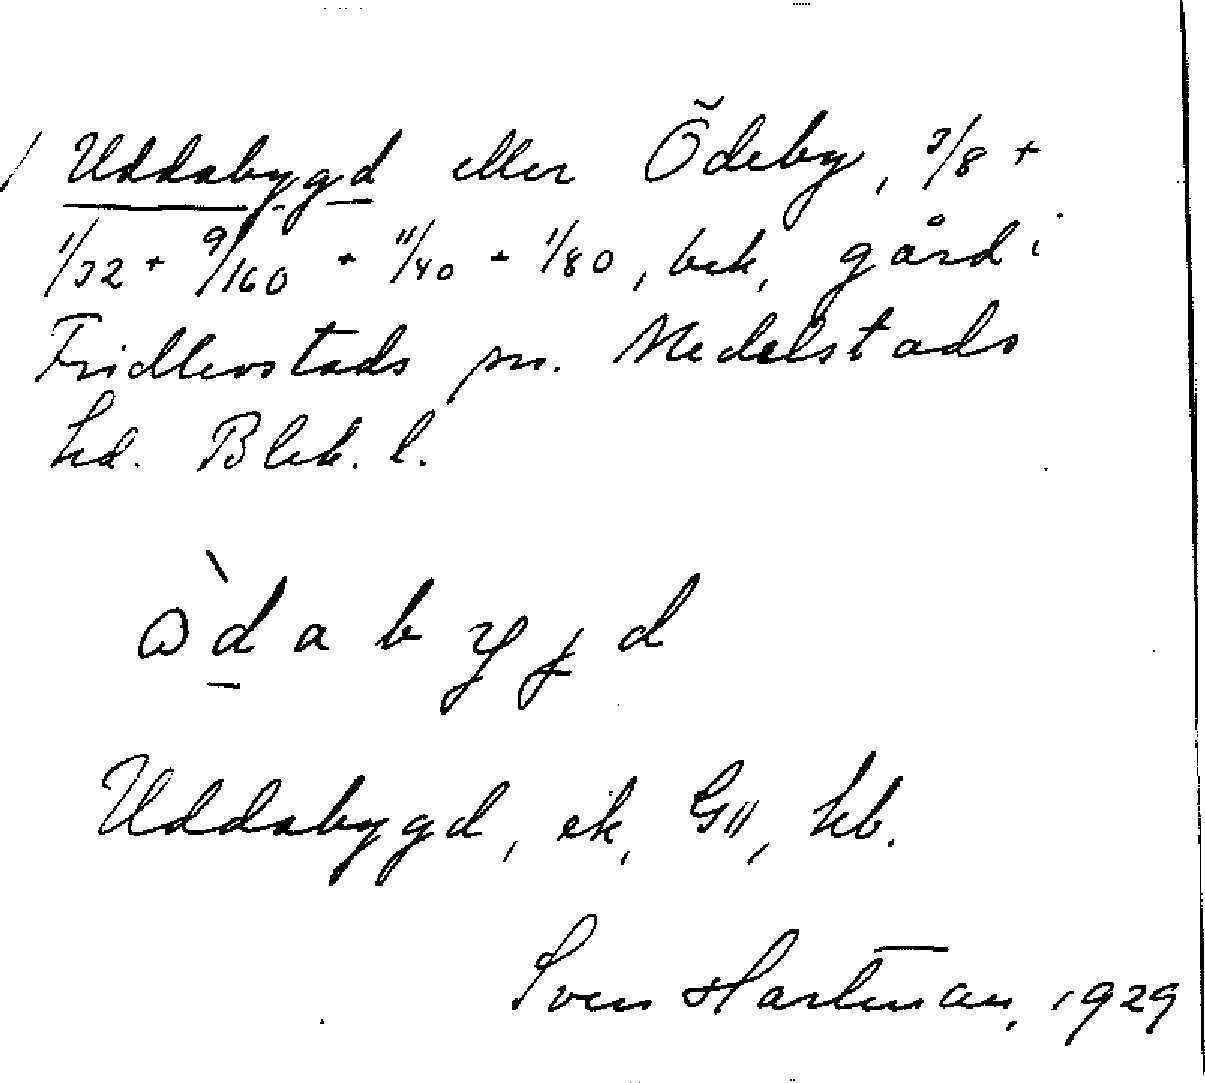 / Uddabygd eller Ödeby, 3/8 +
1/32 + 9/160 + 11/40 + 1/80, bek, gård i
Fridlevstads sn. Medelstads
hd. Blek. l.
d a b y j d
Uddabygd, ek, G11, hb.
Sven Hartman, 1929